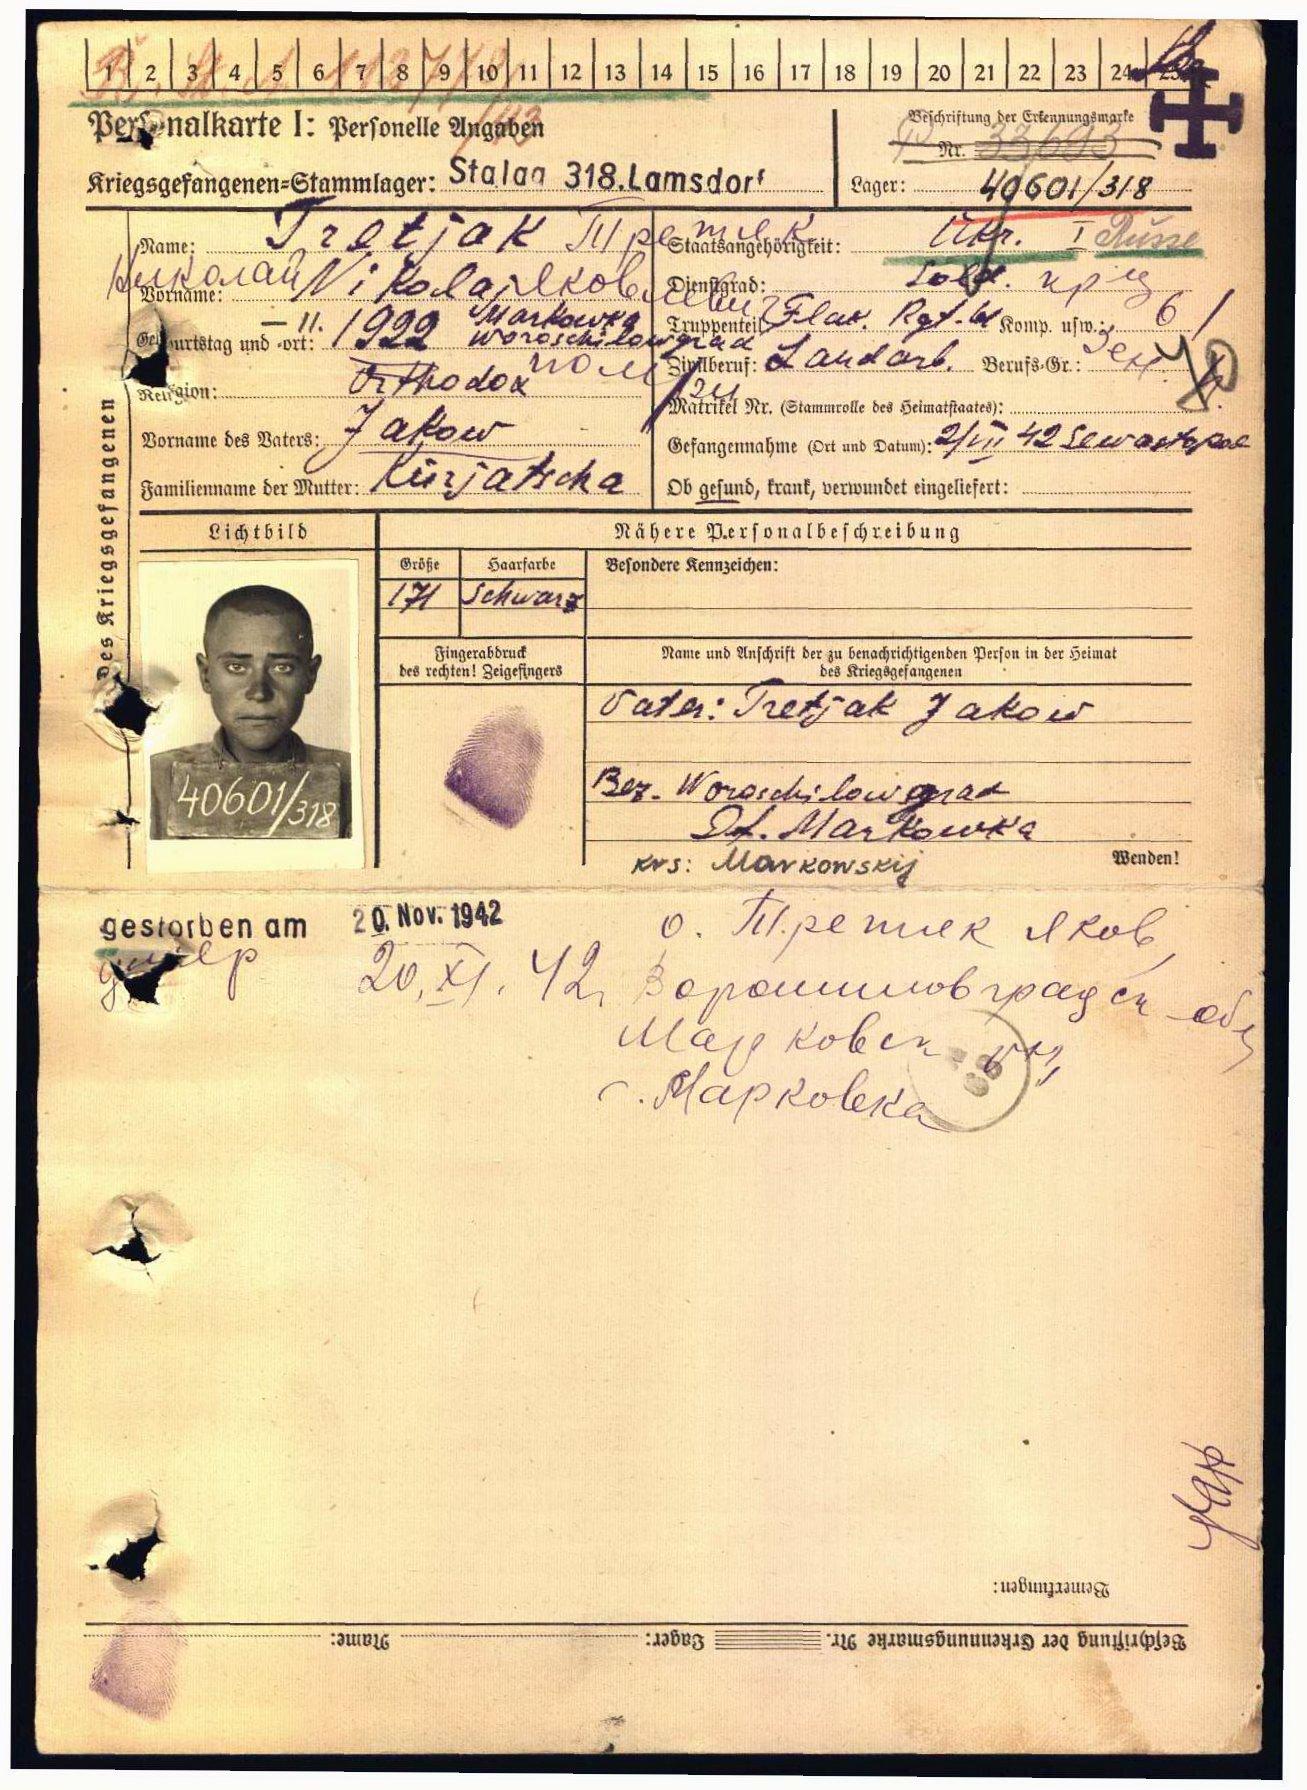 1 2 3 4 5 6 7 8 9 10 11 12 13 14 15 16 17 18 19 20 21 22 23 24 25
Personalkarte I: Personelle Angaben
Beschriftung der Erkennungsmarke
Nr. 33693
Kriegsgefangenen=Stammlager: Stalag 318.Lamsdorf
Lager: 40601/318
des Kriegsgefangenen
Name: Tretjak Третяк
Staatsangehörigkeit: Ukr. I Russe
Николай
Vorname: Nikolaj Яковлевич
Dienstgrad: Sold.
Truppenteil: Flak. Rgt. 61 Komp. usw.: 61
Зен.
Geburtstag und =ort: – 11. 1922 Markowka Woroschilowgrad
Zivilberuf: Landarb. Berufs=Gr.:
Religion: Orthodox
Matrikel Nr. (Stammrolle des Heimatstaates):
Vorname des Vaters: Jakow
Gefangennahme (Ort und Datum): 2/VII 42 Sewastopol
Familienname der Mutter: Kurjatscha
Ob gesund, krank, verwundet eingeliefert:
Lichtbild
Nähere Personalbeschreibung
Größe Haarfarbe Besondere Kennzeichen:
171 Schwarz
40601/318
Fingerabdruck
des rechten! Zeigefingers
Name und Anschrift der zu benachrichtigenden Person in der Heimat
des Kriegsgefangenen
Vater: Tretjak Jakow
Bez. Woroschilowgrad
Df. Markowka
krs: Markowskij
Wenden!
gestorben am 20. Nov. 1942
умер 20.XI.42.
о. Третяк Яков,
Ворошиловградск обл
Марковск
с. Марковка
Bemerkungen:
Beschriftung der Erkennungsmarke Nr. Lager: Name: